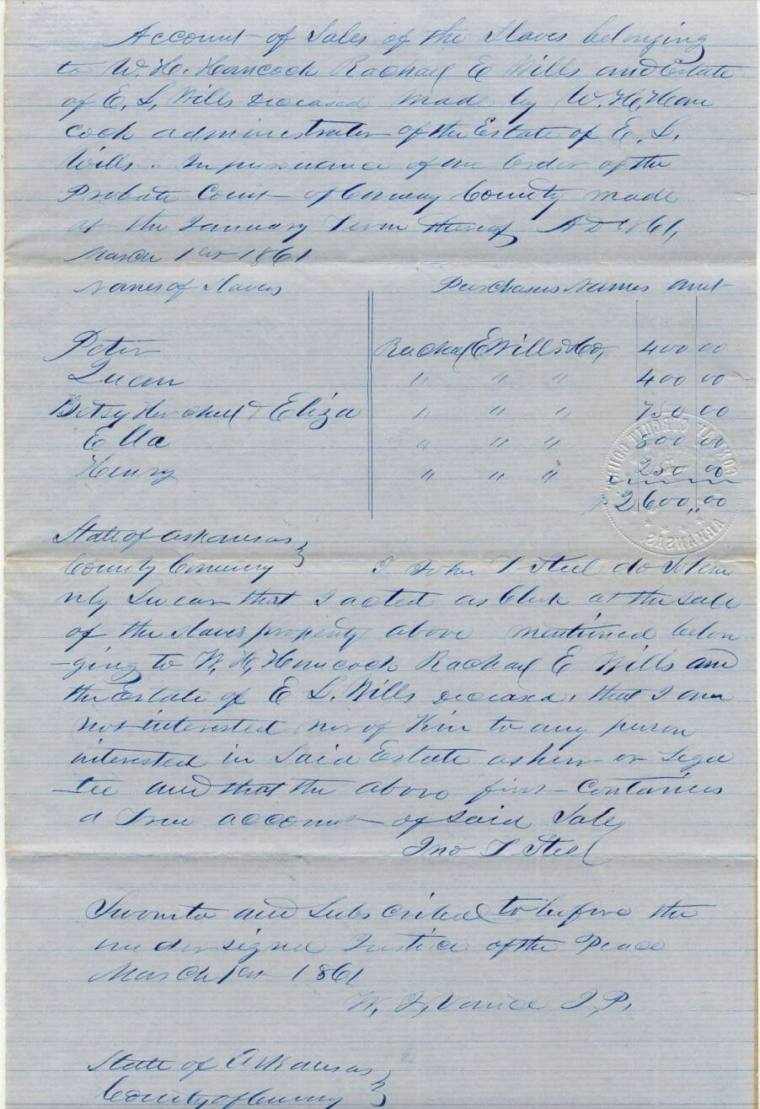 Account of Sales of the Slaves belonging
to W. H. Hancock Rachael E Wills and Estate
of E. L. Wills deceased made by W. H. Han
cock administrator of the Estate of E. L.
Wills. In pursuance of an Order of the
Probate Court of Conway County made
at the January Term thereof AD 1861,
March 1st 1861
Names of Slaves Purchasers Names amt
Peter Rachael E Wills & Co, 400 00
" " " 400 00
Betsy & Eliza " " " 750 00
Ella " " " 500 00
Henry " " " 250 00
2600,,00
State of Arkansas
County Conway I John T Steel do Solem
nly Swear that I acted as Clerk at the sale
of the slaves property above mentioned belon
-ging to W. H. Hancock Rachael E Wills and
the Estate of E L. Wills deceased, that I am
not interested nor of Kin to any person
interested in Said Estate as heir or Lega
-tee and that the above first contains
a True account of said Sale
Jno T Steel
Sworn to and Subscribed to before the
undersigned Justice of the Peace
March 1st 1861
W. J. Vance J.P.
State of Arkansas
County of Conway